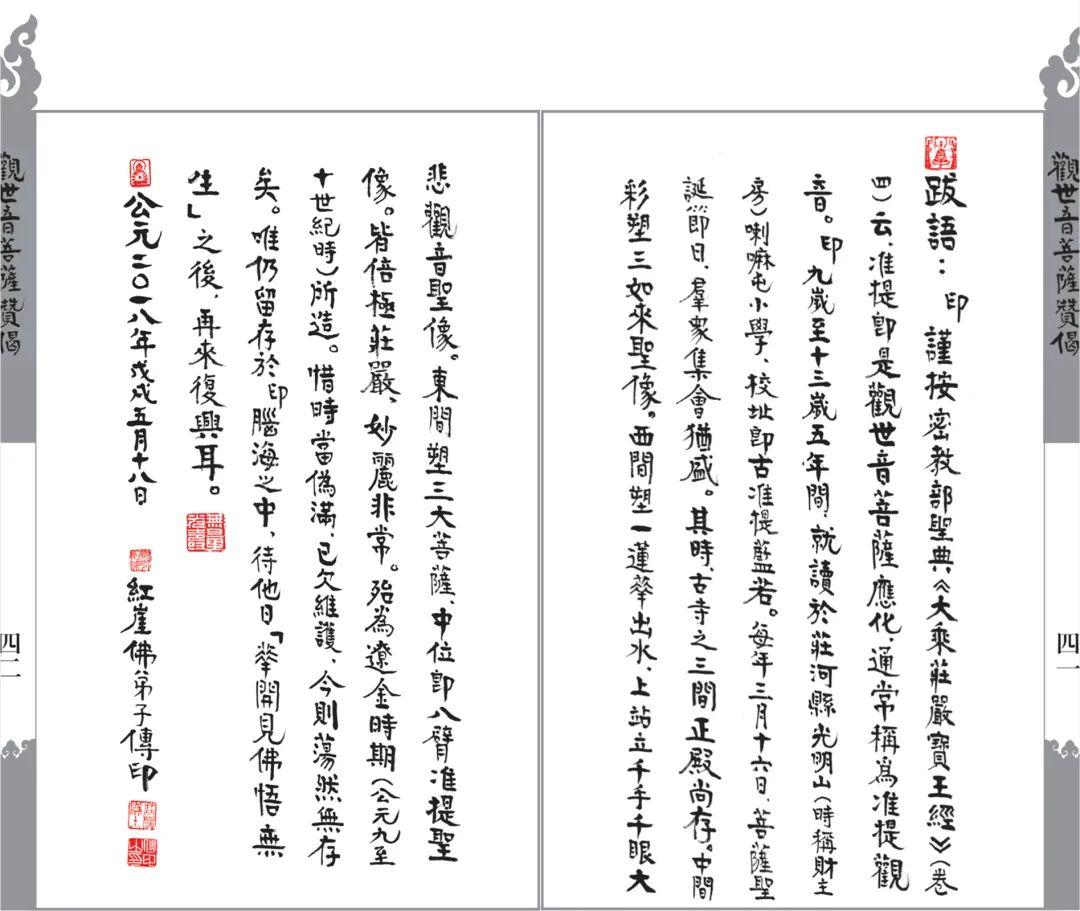 觀世音菩薩贊偈
四一
跋語：印謹按密教部聖典《大乘莊嚴寶王經》（卷
四）云，准提卽是觀世音菩薩應化，通常稱爲准提觀
音。印九歲至十三歲五年間，就讀於莊河縣光明山（時稱財主
房）喇嘛屯小學，校址卽古准提藍若。每年三月十六日，菩薩聖
誕節日，羣衆集會猶盛。其時，古寺之三間正殿尚存。中間
彩塑三如來聖像。西間塑一蓮華出水，上站立千手千眼大
悲觀音聖像。東間塑三大菩薩，中位卽八臂准提聖
像。皆倍極莊嚴，妙麗非常。殆為遼金時期（公元九至
十世紀時）所造。惜時當偽滿，已欠維護，今則蕩然無存
矣。唯仍留存於印腦海之中，待他日「華開見佛悟無
生」之後，再來復興耳。
公元二〇一八年戊戌五月十八日
紅崖佛弟子傳印
觀世音菩薩贊偈
四二